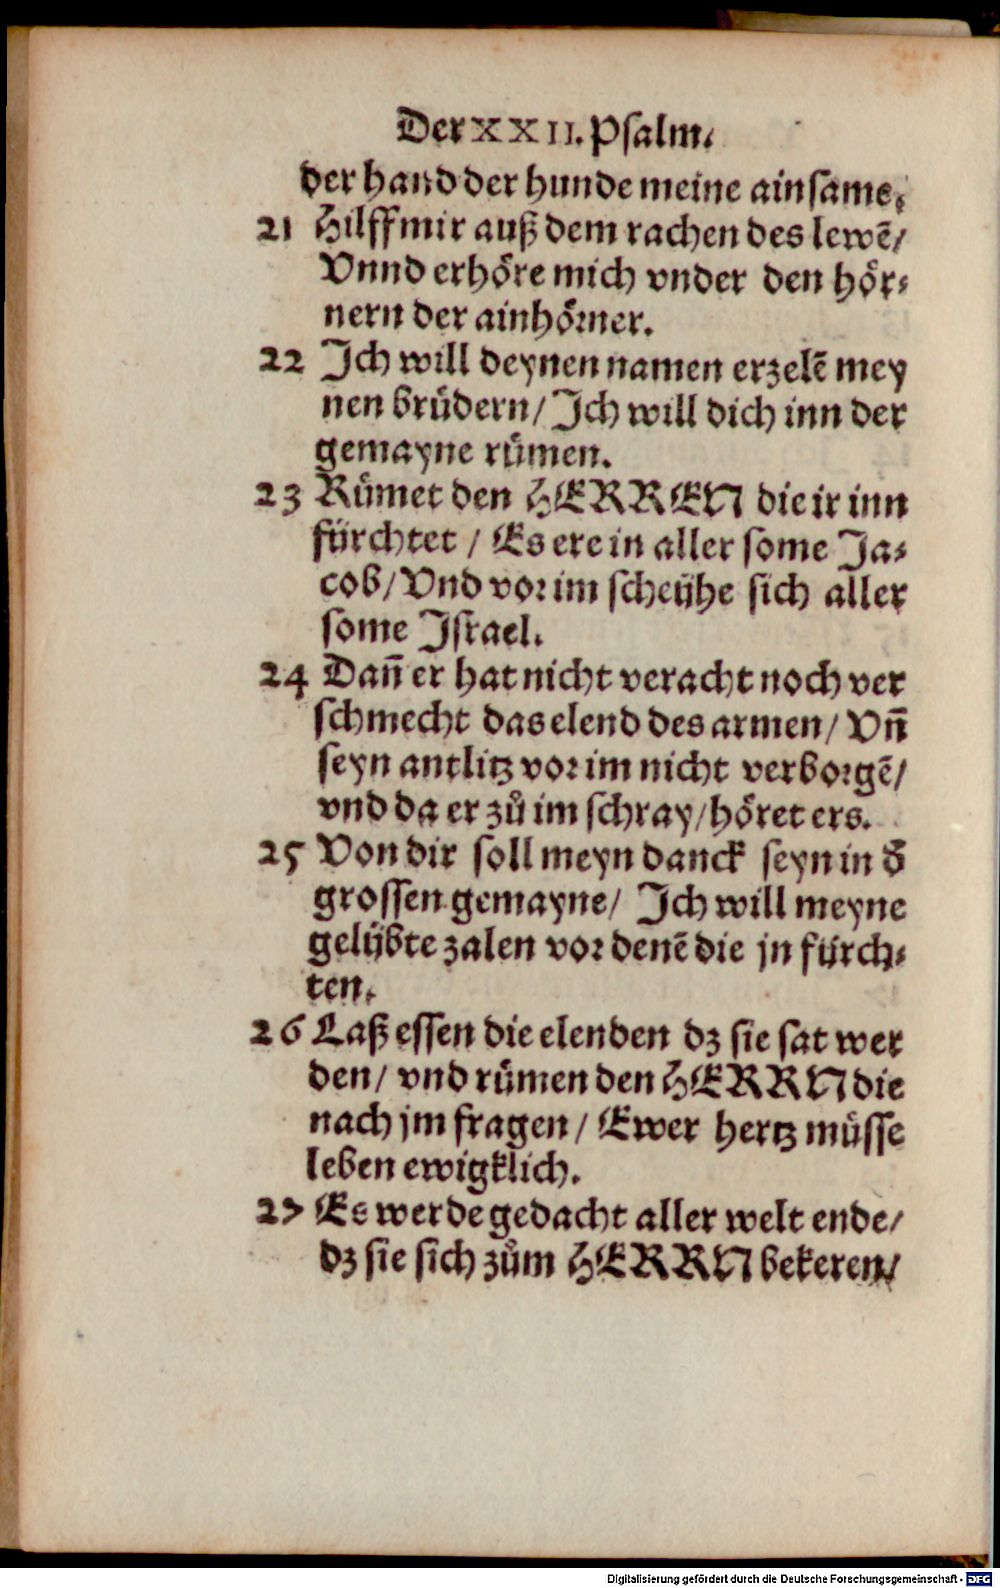 Der XXII. Psalm.
der hand der hunde meine ainsame.
21 Hilff mir auß dem rachen des lewē/
Vnnd erhöre mich vnder den hör⸗
nern der ainhörner.
22 Jch will deynen namen erzelē mey
nen brüdern/ Jch will dich inn der
gemayne rümen.
23 Rümet den HERREN die ir inn
fürchtet / Es ere in aller some Ja⸗
cob/ Vnd vor im scheühe sich aller
some Jsrael.
24 Dañ er hat nicht veracht noch ver
schmecht das elend des armen/ Vñ
seyn antlitz vor im nicht verborgē/
vnd da er zů im schray/ höret ers.
25 Von dir soll meyn danck seyn in đ
grossen gemayne/ Jch will meyne
gelübte zalen vor denē die jn fürch⸗
ten.
26 Laß essen die elenden dz sie sat wer
den/ vnd rümen den HERRN die
nach jm fragen / Ewer hertz müsse
leben ewigklich.
27 Es werde gedacht aller welt ende/
dz sie sich zům HERRN bekeren/
Digitalisierung gefördert durch die Deutsche Forschungsgemeinschaft - DFG